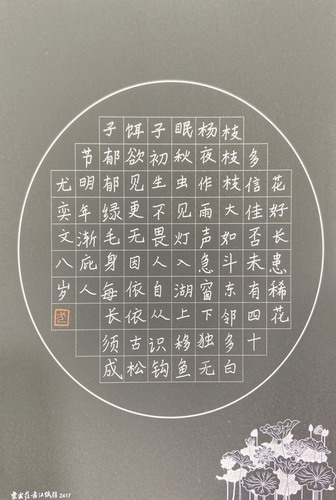 花好长患稀花
多信佳否未有四十
枝枝枝大如斗东邻多白
杨夜作雨声急窗下独无
眠秋虫见灯入湖上移鱼
子初生不畏人自从识钩
饵欲见更无因依依古松
子郁郁绿毛身每长须成
节明年渐庇人
尤奕文八岁
2017